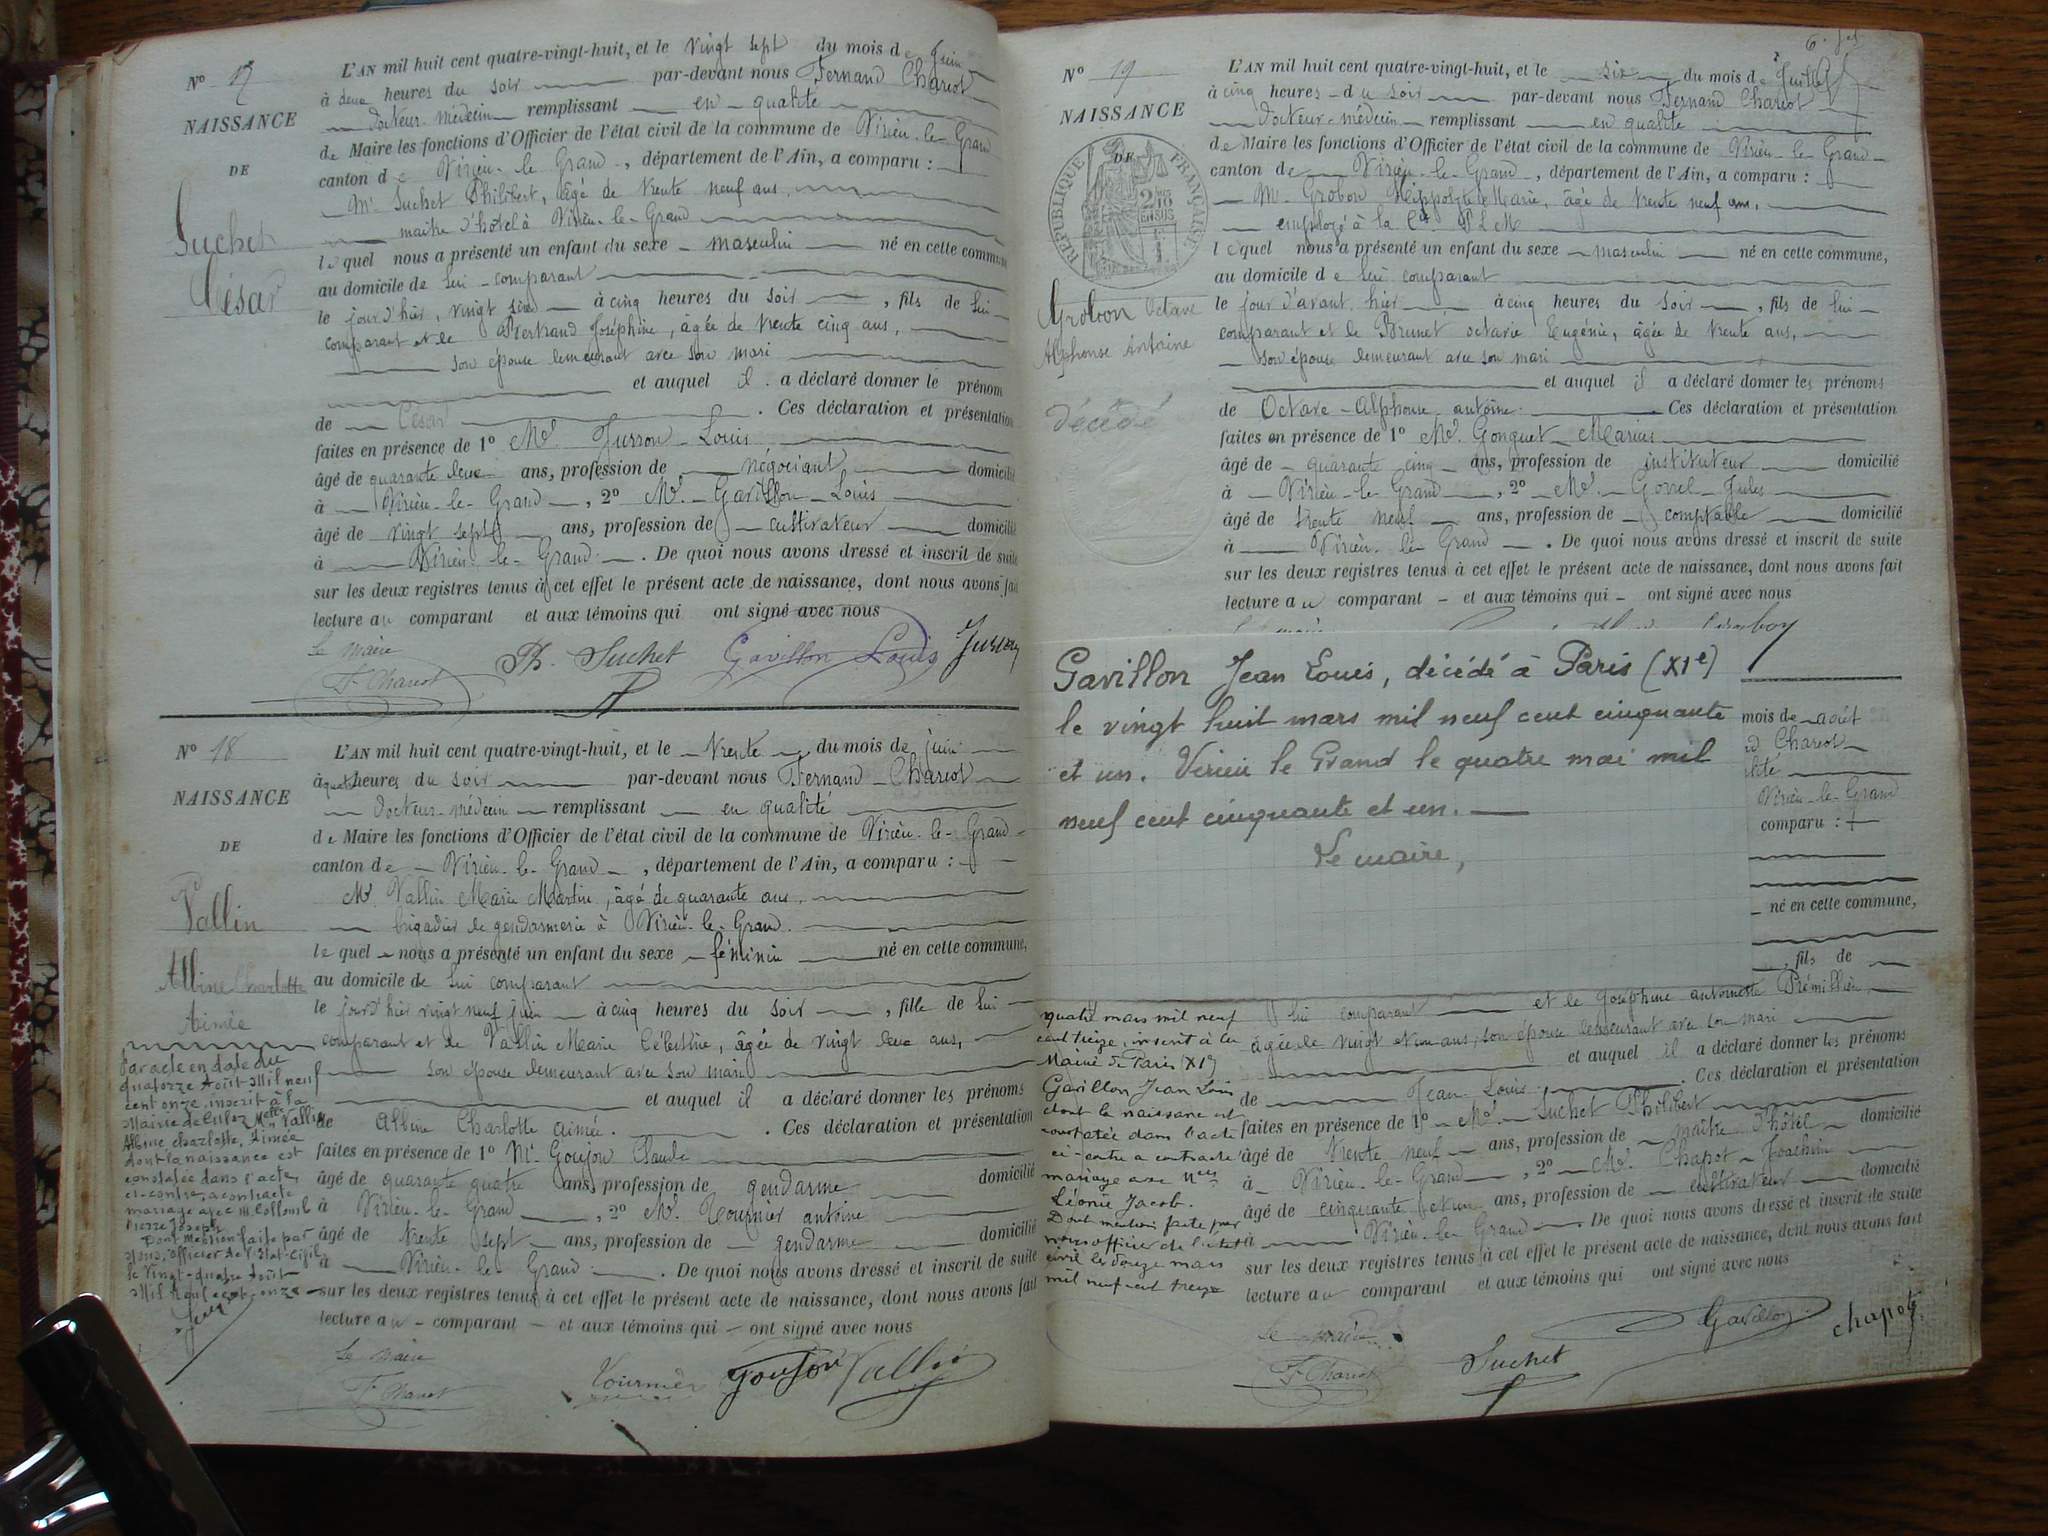 N° 17
NAISSANCE
DE
Suchet
César
L'AN mil huit cent quatre-vingt-huit, et le vingt sept du mois de juin
à deux heures du soir par-devant nous Fernand Charcot
docteur-médecin remplissant en qualité
de Maire les fonctions d'Officier de l'état civil de la commune de Virieu-le-Grand
canton de Virieu-le-Grand, département de l'Ain, a comparu :
Mr Suchet Philibert, âgé de trente neuf ans,
maître d'hôtel à Virieu-le-Grand
lequel nous a présenté un enfant du sexe masculin né en cette commune
au domicile de lui comparant
le jour d'hier, vingt six à cinq heures du soir, fils de lui
comparant et de Bertrand Joséphine, âgée de trente cinq ans,
son épouse demeurant avec son mari
et auquel il a déclaré donner le prénom
de César. Ces déclaration et présentation
faites en présence de 1° Mr. Jusson Louis
âgé de quarante deux ans, profession de négociant domicilié
à Virieu-le-Grand, 2° Mr. Gavillon Louis
âgé de vingt sept ans, profession de cultivateur domicilié
à Virieu-le-Grand. De quoi nous avons dressé et inscrit de suite
sur les deux registres tenus à cet effet le présent acte de naissance, dont nous avons fait
lecture au comparant et aux témoins qui ont signé avec nous
Le maire
F. Charcot Ph. Suchet Gavillon Louis Jusson
N° 18
NAISSANCE
DE
Vallin
Albine Charlotte
Aimée
Par acte en date du
quatorze Août Mil neuf
cent onze, inscrit à la
Mairie de Culoz Melle Vallin
Albine Charlotte, Aimée
dont la naissance est
constatée dans l'acte
ci-contre, a contracté
mariage avec M. Collomb
Pierre Joseph
Dont Mention faite par
Nous, Officier de l'Etat-Civil,
le Vingt-quatre Août
Mil neuf cent onze
L'AN mil huit cent quatre-vingt-huit, et le trente du mois de juin
à quatre heures du soir par-devant nous Fernand Charcot
docteur-médecin remplissant en qualité
de Maire les fonctions d'Officier de l'état civil de la commune de Virieu-le-Grand
canton de Virieu-le-Grand, département de l'Ain, a comparu :
Mr. Vallin Marie Martin, âgé de quarante ans,
brigadier de gendarmerie à Virieu-le-Grand.
lequel nous a présenté un enfant du sexe féminin né en cette commune,
au domicile de lui comparant
le jour d'hier vingt neuf juin à cinq heures du soir, fille de lui
comparant et de Vallin Marie Célestine, âgée de vingt deux ans,
son épouse demeurant avec son mari
et auquel il a déclaré donner les prénoms
de Albine Charlotte aimée. Ces déclaration et présentation
faites en présence de 1° Mr Goujon Claude
âgé de quarante quatre ans, profession de gendarme domicilié
à Virieu-le-Grand, 2° Mr. Tournier antoine
âgé de trente sept ans, profession de gendarme domicilié
à Virieu-le-Grand. De quoi nous avons dressé et inscrit de suite
sur les deux registres tenus à cet effet le présent acte de naissance, dont nous avons fait
lecture au comparant et aux témoins qui ont signé avec nous
Le maire
F. Charcot Tournier Goujon Vallin
N° 19
NAISSANCE
DE
RÉPUBLIQUE FRANÇAISE
2 10es EN SUS
Grobon Octave
Alphonse Antoine
décédé
L'AN mil huit cent quatre-vingt-huit, et le six du mois de Juillet
à cinq heures du soir par-devant nous Fernand Charcot
docteur-médecin remplissant en qualité
de Maire les fonctions d'Officier de l'état civil de la commune de Virieu-le-Grand
canton de Virieu-le-Grand, département de l'Ain, a comparu :
Mr. Grobon Hippolyte Marie, âgé de trente neuf ans,
employé à la Cie P L M
lequel nous a présenté un enfant du sexe masculin né en cette commune,
au domicile de lui comparant
le jour d'avant hier à cinq heures du soir, fils de lui
comparant et de Brunet octavie Eugénie, âgée de trente ans,
son épouse demeurant avec son mari
et auquel il a déclaré donner les prénoms
de Octave Alphonse antoine. Ces déclaration et présentation
faites en présence de 1° Mr. Gonguet Marius
âgé de quarante cinq ans, profession de instituteur domicilié
à Virieu-le-Grand, 2° Mr. Gorrel Jules
âgé de trente neuf ans, profession de comptable domicilié
à Virieu-le-Grand. De quoi nous avons dressé et inscrit de suite
sur les deux registres tenus à cet effet le présent acte de naissance, dont nous avons fait
lecture au comparant et aux témoins qui ont signé avec nous
Gavillon Jean Louis, décédé à Paris (XIe)
le vingt huit mars mil neuf cent cinquante
et un. Virieu le Grand le quatre mai mil
neuf cent cinquante et un.
Le maire,
mois de août
Charcot
Virieu-le-Grand
comparu :
né en cette commune,
, fils de
quatre mars mil neuf
cent treize, inscrit à la
Mairie de Paris XIe
Gavillon Jean Louis
dont la naissance est
constatée dans l'acte
ci-contre a contracté
mariage avec
Léonie Jacob.
Dont mention faite par
nous officier de l'état
civil le douze mars
mil neuf cent treize
lui comparant et de Joséphine antoinette Prémillieu,
âgée de vingt et un ans, son épouse demeurant avec son mari
et auquel il a déclaré donner les prénoms
de Jean Louis. Ces déclaration et présentation
faites en présence de 1° Mr. Suchet Philibert
âgé de trente neuf ans, profession de maître d'hôtel domicilié
à Virieu-le-Grand, 2° Mr. Chapot Joachim
âgé de cinquante et un ans, profession de cultivateur domicilié
à Virieu-le-Grand. De quoi nous avons dressé et inscrit de suite
sur les deux registres tenus à cet effet le présent acte de naissance, dont nous avons fait
lecture au comparant et aux témoins qui ont signé avec nous
Le maire
F. Charcot Suchet Gavillon chapot